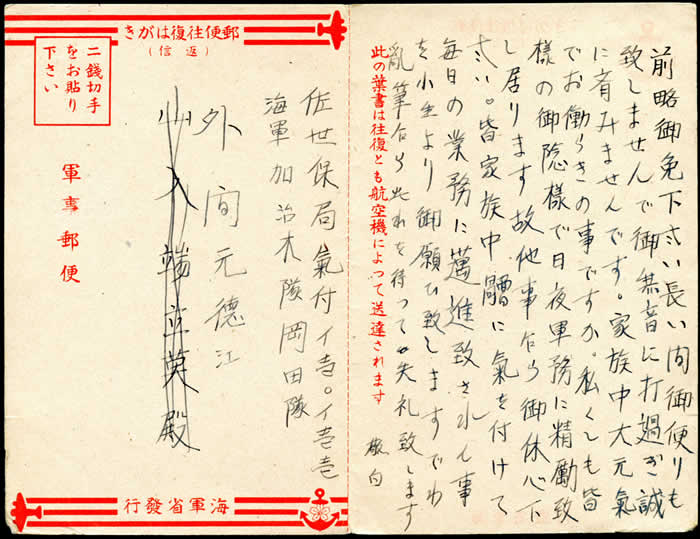 前略御免下さい長い間御便りも
致しませんで御恭音に打過ぎ誠
に斉みませんです。家族中大元氣
でお働らきの事ですか。私くしも皆
様の御陰様で日夜軍務に精働致
し居ります故他事乍ら御休心下
さい。皆家族中體に氣を付けて
毎日の業務に邁進致されん事
を小生より御願ひ致しますでわ
亂筆乍ら此れを待って失礼致します
敬白
此の葉書は往復とも航空機によって送達されます
郵便往復はがき
(返信)
二錢切手
をお貼り
下さい
軍事郵便
佐世保局氣付イ壱〇イ壱壱
海軍加治木隊岡田隊
外間元德江
入端立英殿
海軍省發行